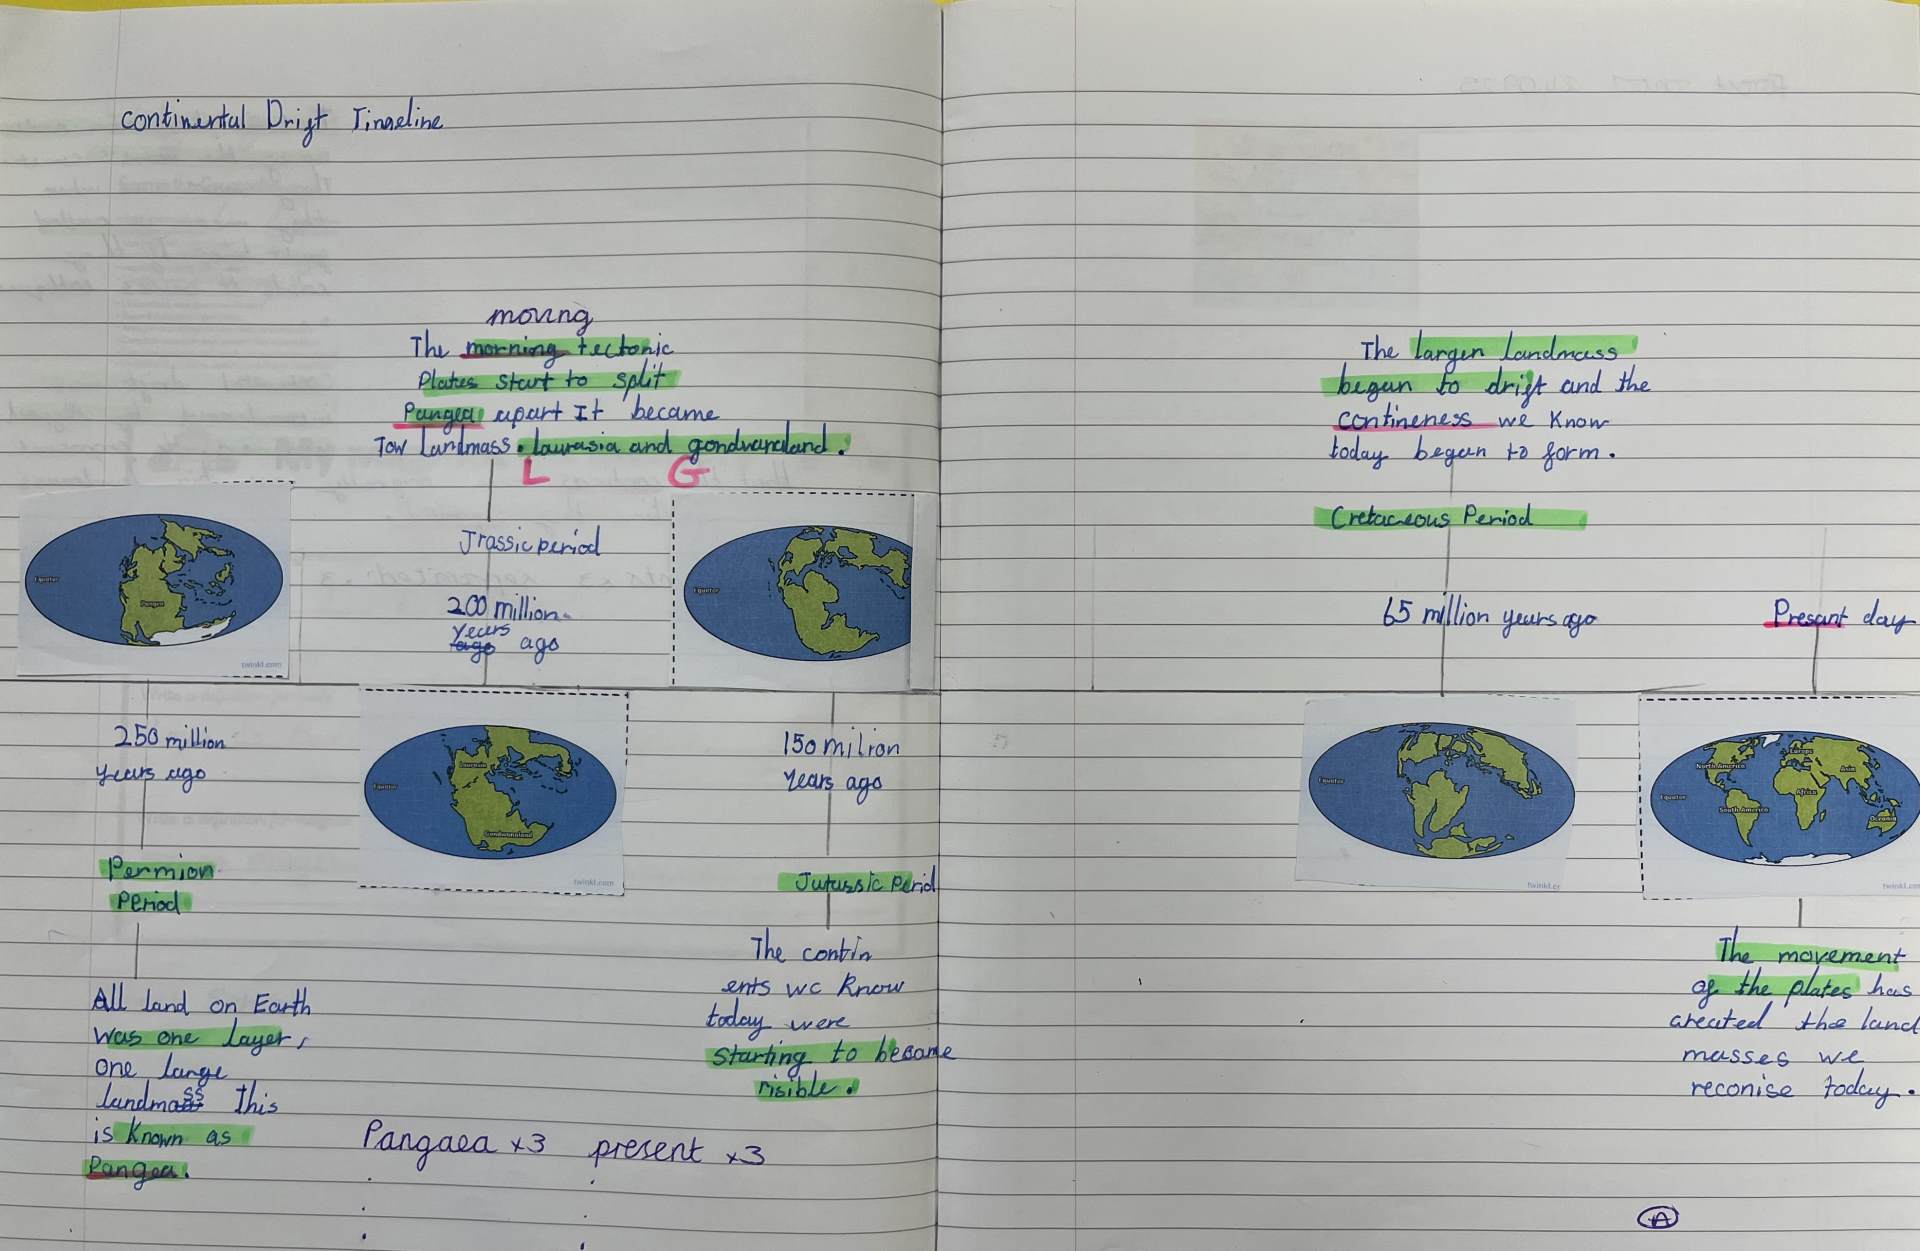 continental Drift Timeline
moving
The morning tectonic
Plates start to split
Pangea apart It became
Tow Landmass. laurasia and gondwanaland.
L G
Jrassic period
200 million
years
ago ago
Equator
Pangea
twinkl.com
Equator
250 million
years ago
Permion
Period
All land on Earth
was one layer,
one large
landmass This
is known as
Pangea.
Laurasia
Equator
Gondwanaland
twinkl.com
150 milion
years ago
Jurassic Perid
The contin
ents we know
today were
starting to became
risible.
Pangaea x3 present x3
The largen landmass
began to drift and the
contineness we know
today began to form.
Cretaceous Period
65 million years ago
Presant day
Equator
twinkl.co
North America
Europe
Asia
Equator
Africa
South America
Oceania
twinkl.com
The movement
of the plates has
created the land
masses we
reconise today.
A